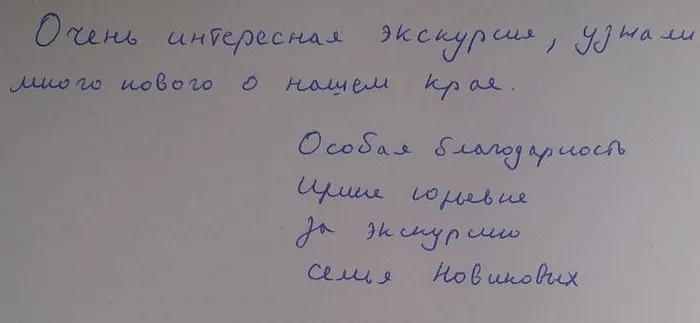 Очень интересная экскурсия, узнали
много нового о нашем крае.
Особая благодарность
Ирине Юрьевне
За экскурсию
семья Новиковых